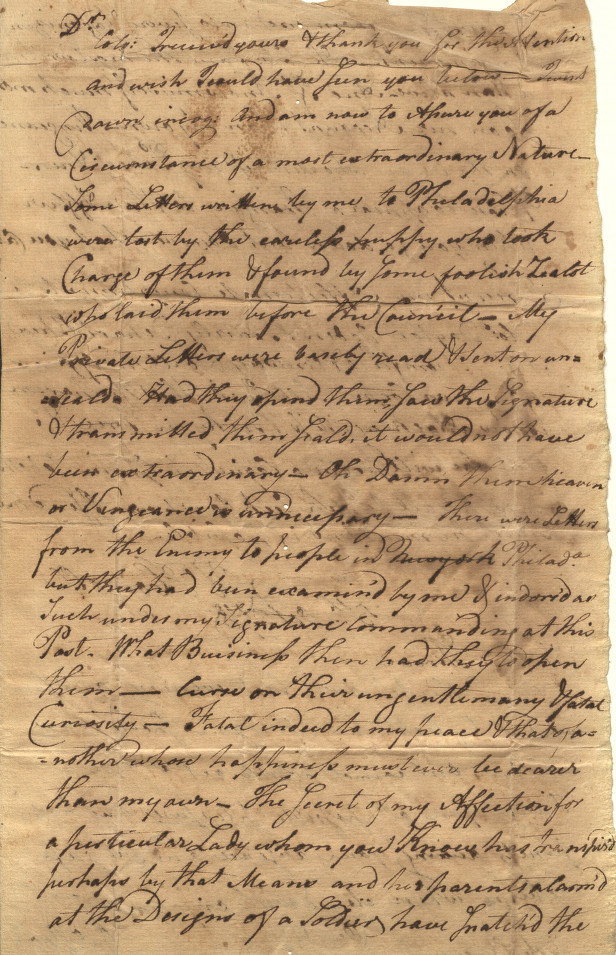 Dr.
Colo: I receivd yours & thank you for the Attention
and wish I could have seen you below —
down         And am now to Assure you of a
Circumstance of a most extraordinary Nature —
Some Letters written by me to Philadelphia
were lost by the careless puppy who took
Charge of them & found by some foolish Zealot
who laid them before the Council — My
Private Letters were basely read & sent on un=
seald. Had they opend them, saw the Signature
& transmitted them seald, it would not have
been extraordinary — Oh Damn them heaven
or Vengeance is unnecessary — There were Letters
from the Enemy to people in Newyork Philada.
but they had been examind by me & indorsd as
Such under my Signature commanding at this
Post. What Buisiness then had they to open
them — Curse on their ungentlemany & fatal
Curiosity — Fatal indeed to my peace & that of a=
=nother whose happiness must ever be dearer
than my own — The Secret of my Affection for
a perticular Lady whom you Know has transpir'd
perhaps by that Means and her parents alarm'd
at the Designs of a Soldier, have snatch'd the